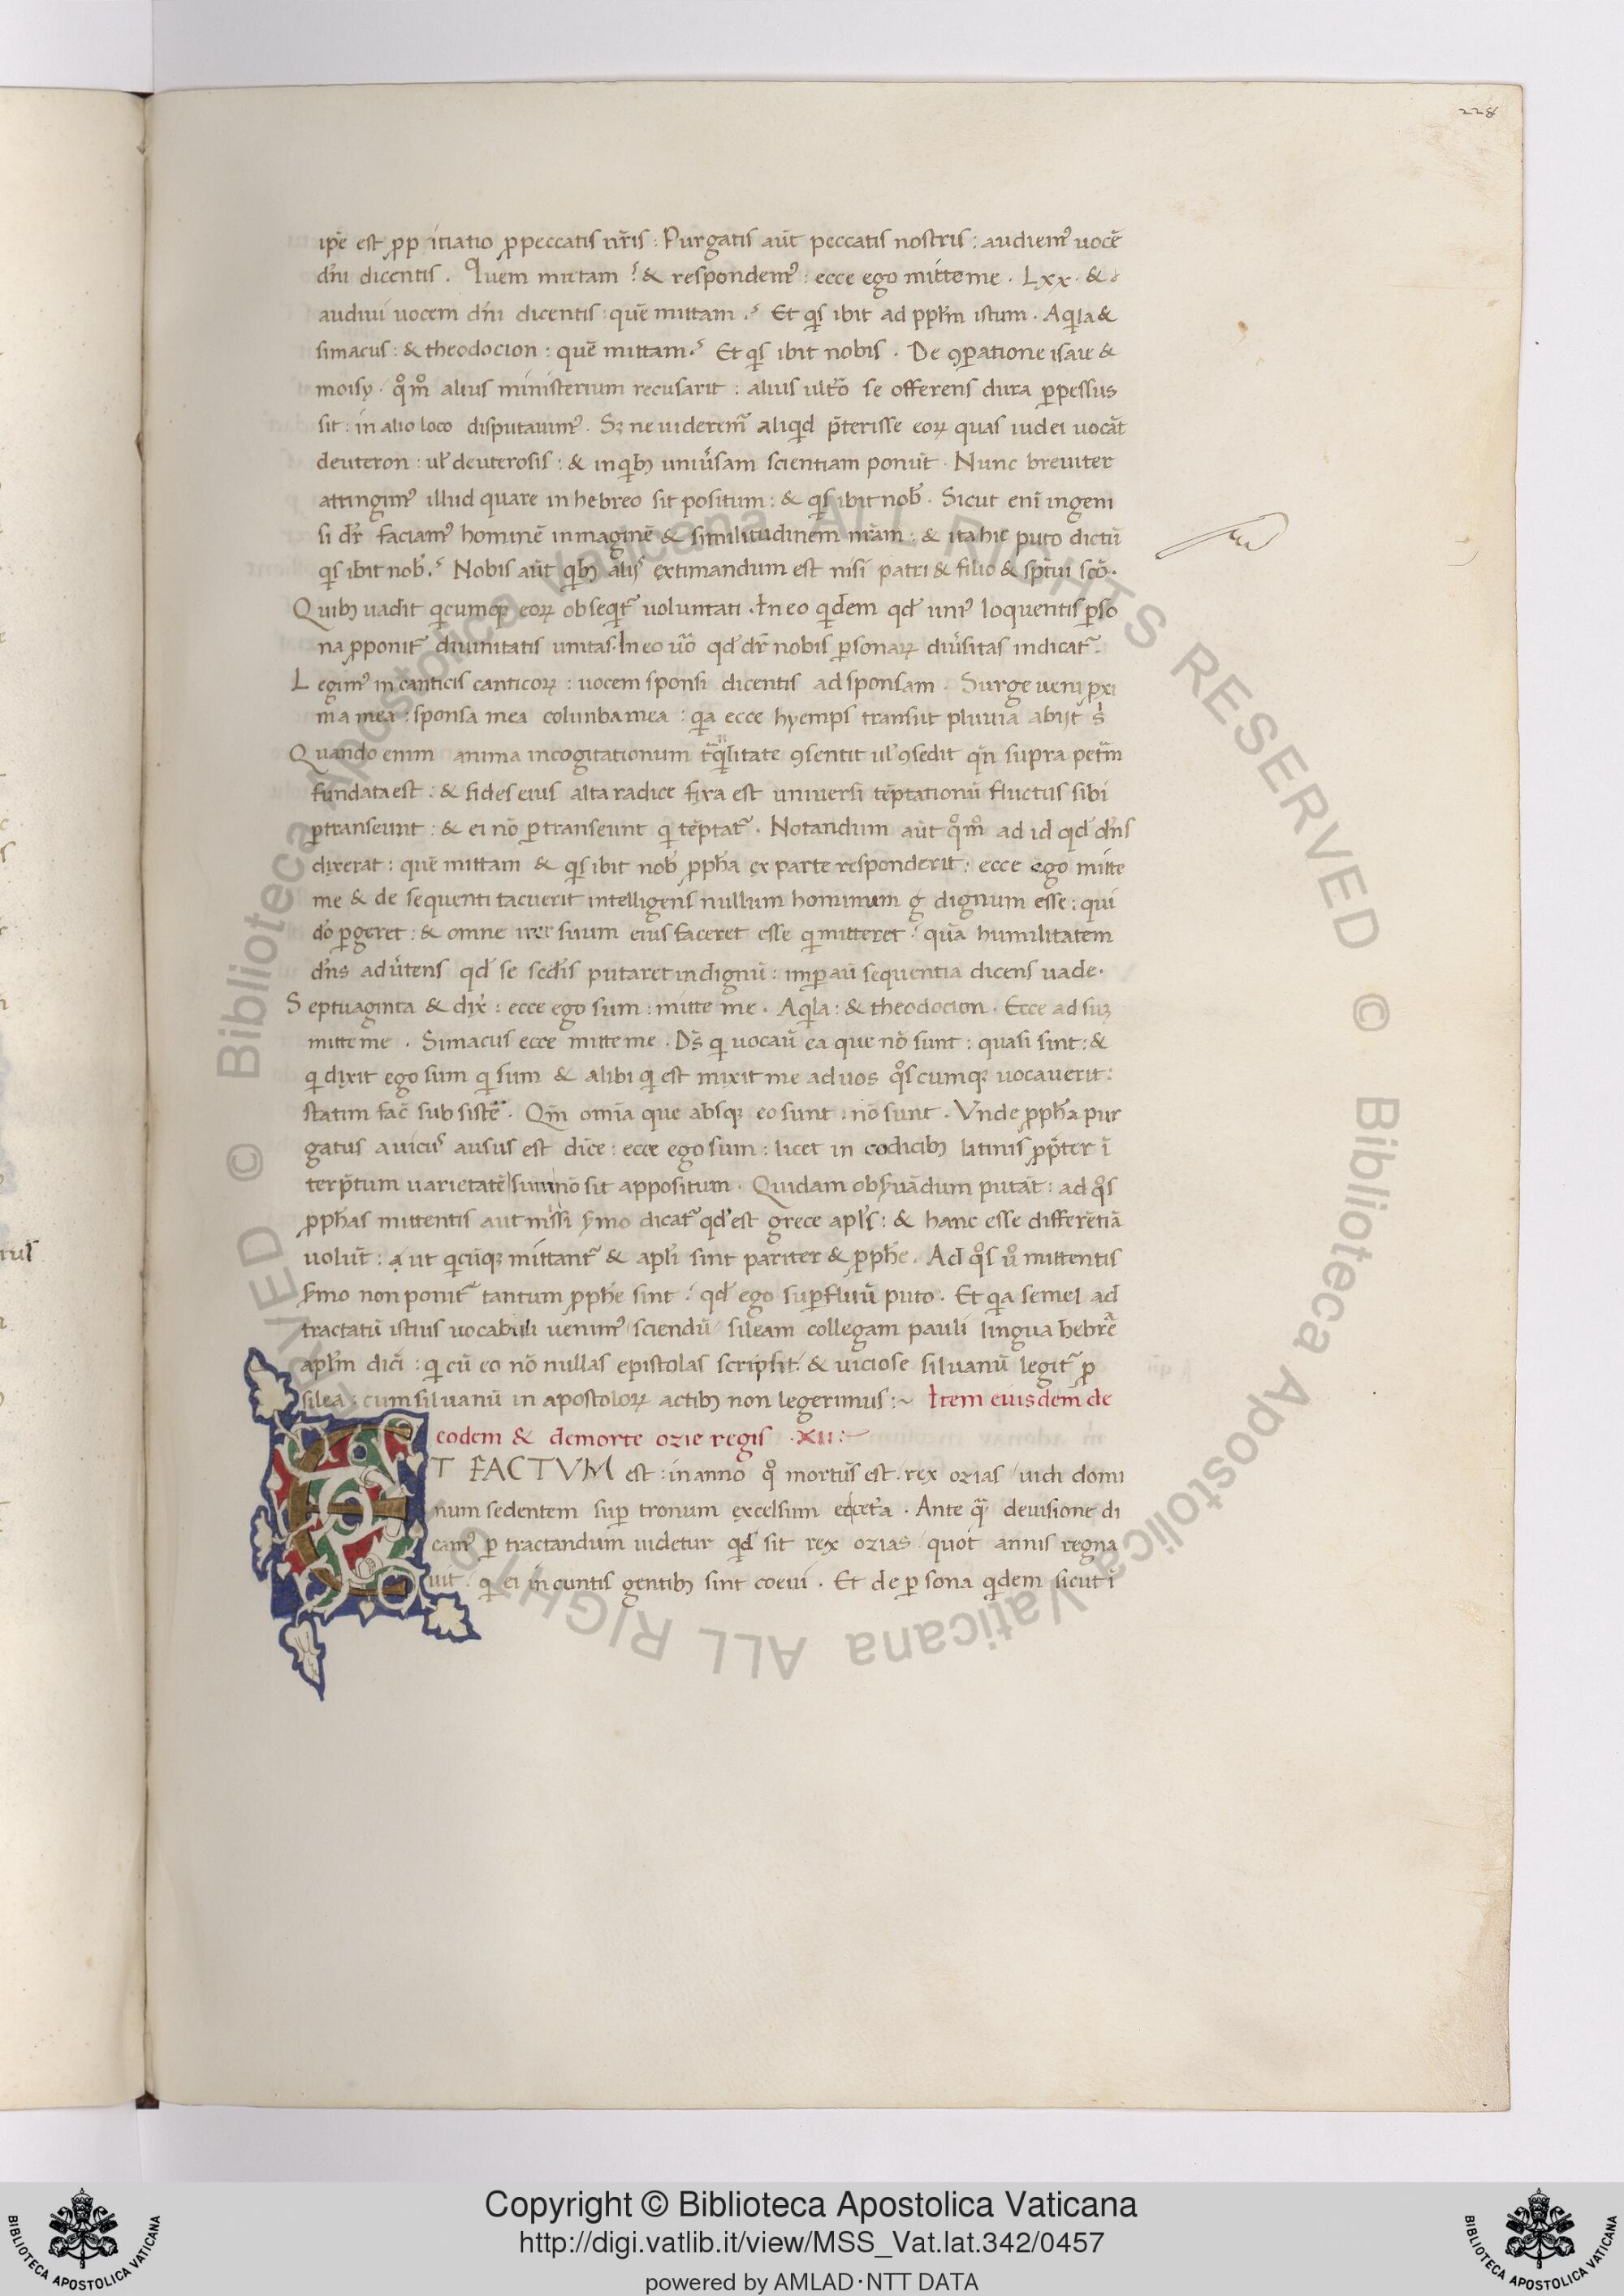 228
ip̄e est ꝓp itiatio ꝓpeccatis nr̄is : Purgatis aūt peccatis nostris : audiemꝰ uocē
dn̄i dicentis . Quem mittam ? & respondemꝰ : ecce ego mitte me . Lxx . &
audiui uocem dn̄i dicentis : quē mittam ? Et qͥs ibit ad ppl̄m istum . Aqͥla &
simacus : & theodocion : quē mittam ? Et qͥs ibit nobis . De ꝯꝑatione isaie &
moisy . qͦmͦ alius ministerium recusarit : alius ult̄o se offerens dura ꝑpessus
sit : in alio loco disputauimꝰ . Sꝫ ne uideremr̄ aliqͥd p̄terisse eoꝝ quas iudei uocāt
deuteron : ul̄ deuterosis : & inqͥbꝫ uniūsam scientiam ponūt . Nunc breuiter
attingimꝰ illud quare in hebreo sit positum : & qͥs ibit nob̄ . Sicut enī ingeni
si dr̄ faciamꝰ hominē inmaginē & similitudinem nrām : & ita hic puto dictū
qͥs ibit nob̄ ? Nobis aūt qͥbꝫ alijs extimandum est nisi patri & filio & sp̄tui scō .
Quibꝫ uadit qͥcumqꝫ eoꝝ obseqͥtr̄ uoluntati . In eo qͥdem qd̄ unıꝰ loquentis ꝑso
na ꝓponitr̄ diuinitatis unitas . In eo ūo qd̄ dr̄ nobis ꝑsonaꝝ diūsitas indicatr̄ .
Legimꝰ in canticis canticoꝝ : uocem sponsi dicentis ad sponsam . Surge ueni ꝓxi
ma mea : sponsa mea colunba mea : qͥa ecce hyemps transiit pluuia abijt s̄
Quando enim anima incogitationum tͣqͥllitate ꝯsentit ul̄ ꝯsedit qn̄ supra petͣm
fundata est : & fides eius alta radice fixa est uniuersi tēptationū fluctus sibi
ꝑtranseunt : & ei nō ꝑtranseunt qͥ tēptatr̄ . Notandum aūt qͦmͦ ad id qd̄ dn̄s
dixerat : quē mittam & qͥs ibit nob̄ ꝓph̄a ex parte responderit : ecce ego mitte
me & de sequenti tacuerit intelligens nullum hominum g̊ dignum esse : qui
dō ꝑgeret : & omne iter suum eius faceret esse qͥ mitteret : quā humilitatem
dn̄s aduūtens qd̄ se scd̄is putaret indignū : imꝑaū sequentia dicens uade .
Septuaginta & dix̄ : ecce ego sum : mitte me . Aqͥla : & theodocion . Ecce adsuꝫ
mitte me . Simacus ecce mitte me . Ds̄ qͥ uocaū ea que nō sunt : quasi sint : &
qͥ dixit ego sum qͥ sum & alibi qͥ est mixit me ad uos qͦscumqꝫ uocauerit :
statim fac̄ subsistē . Qm̄ omīa que absqꝫ eo sunt : nō sunt . Vnde ꝓph̄a pur
gatus a uicijs ausus est dic̄e : ecce ego sum : licet in codicibꝫ latinis ꝓpter ī
terp̄tum uarietatē sum nō sit appositum . Quidam obs̄uādum putāt : ad qͦs
ꝓph̄as mittentis aut missi s̄mo dicatr̄ qd̄ est grece apl̄s : & hanc esse differētiā
uolūt : a ut qͥcūqꝫ mittantr̄ & apl̄i sint pariter & ꝓph̄e . Ad qͦs ūͦ mittentis
s̄mo non ponitr̄ tantum ꝓph̄e sint : qd̄ ego suꝑfluū puto . Et qͥa semel ad
tractatū istius uocabuli uenimꝰ / sciendū / sileam collegam pauli lingua hebrēa
apl̄m dicī : qͥ cū eo nō nullas epistolas scripsit : & uiciose siluanū legitr̄ ꝑ
silea : cum siluanū in apostoloꝝ actibꝫ non legerimus :~ Item eiusdem de
eodem & demorte ozie regis . XII :~
ET FACTVM est : in anno qͦ mortūs est . rex ozias / uidi domi
num sedentem suꝑ tronum excelsum eccet̄a . Ante qͣ deuisione di
camꝰ ꝑ tractandum uidetur qͥd sit rex ozias quot annis regna
uit . qͥ ei in cuntis gentibꝫ sint coeui . Et de ꝑ sona qͥdem sicut ī
© Biblioteca Apostolica Vaticana ALL RIGHTS RESERVED © Biblioteca Apostolica Vaticana ALL RIGHTS RESERVED
Copyright © Biblioteca Apostolica Vaticana
http://digi.vatlib.it/view/MSS_Vat.lat.342/0457
powered by AMLAD·NTT DATA
BIBLIOTECA APOSTOLICA VATICANA
BIBLIOTECA APOSTOLICA VATICANA